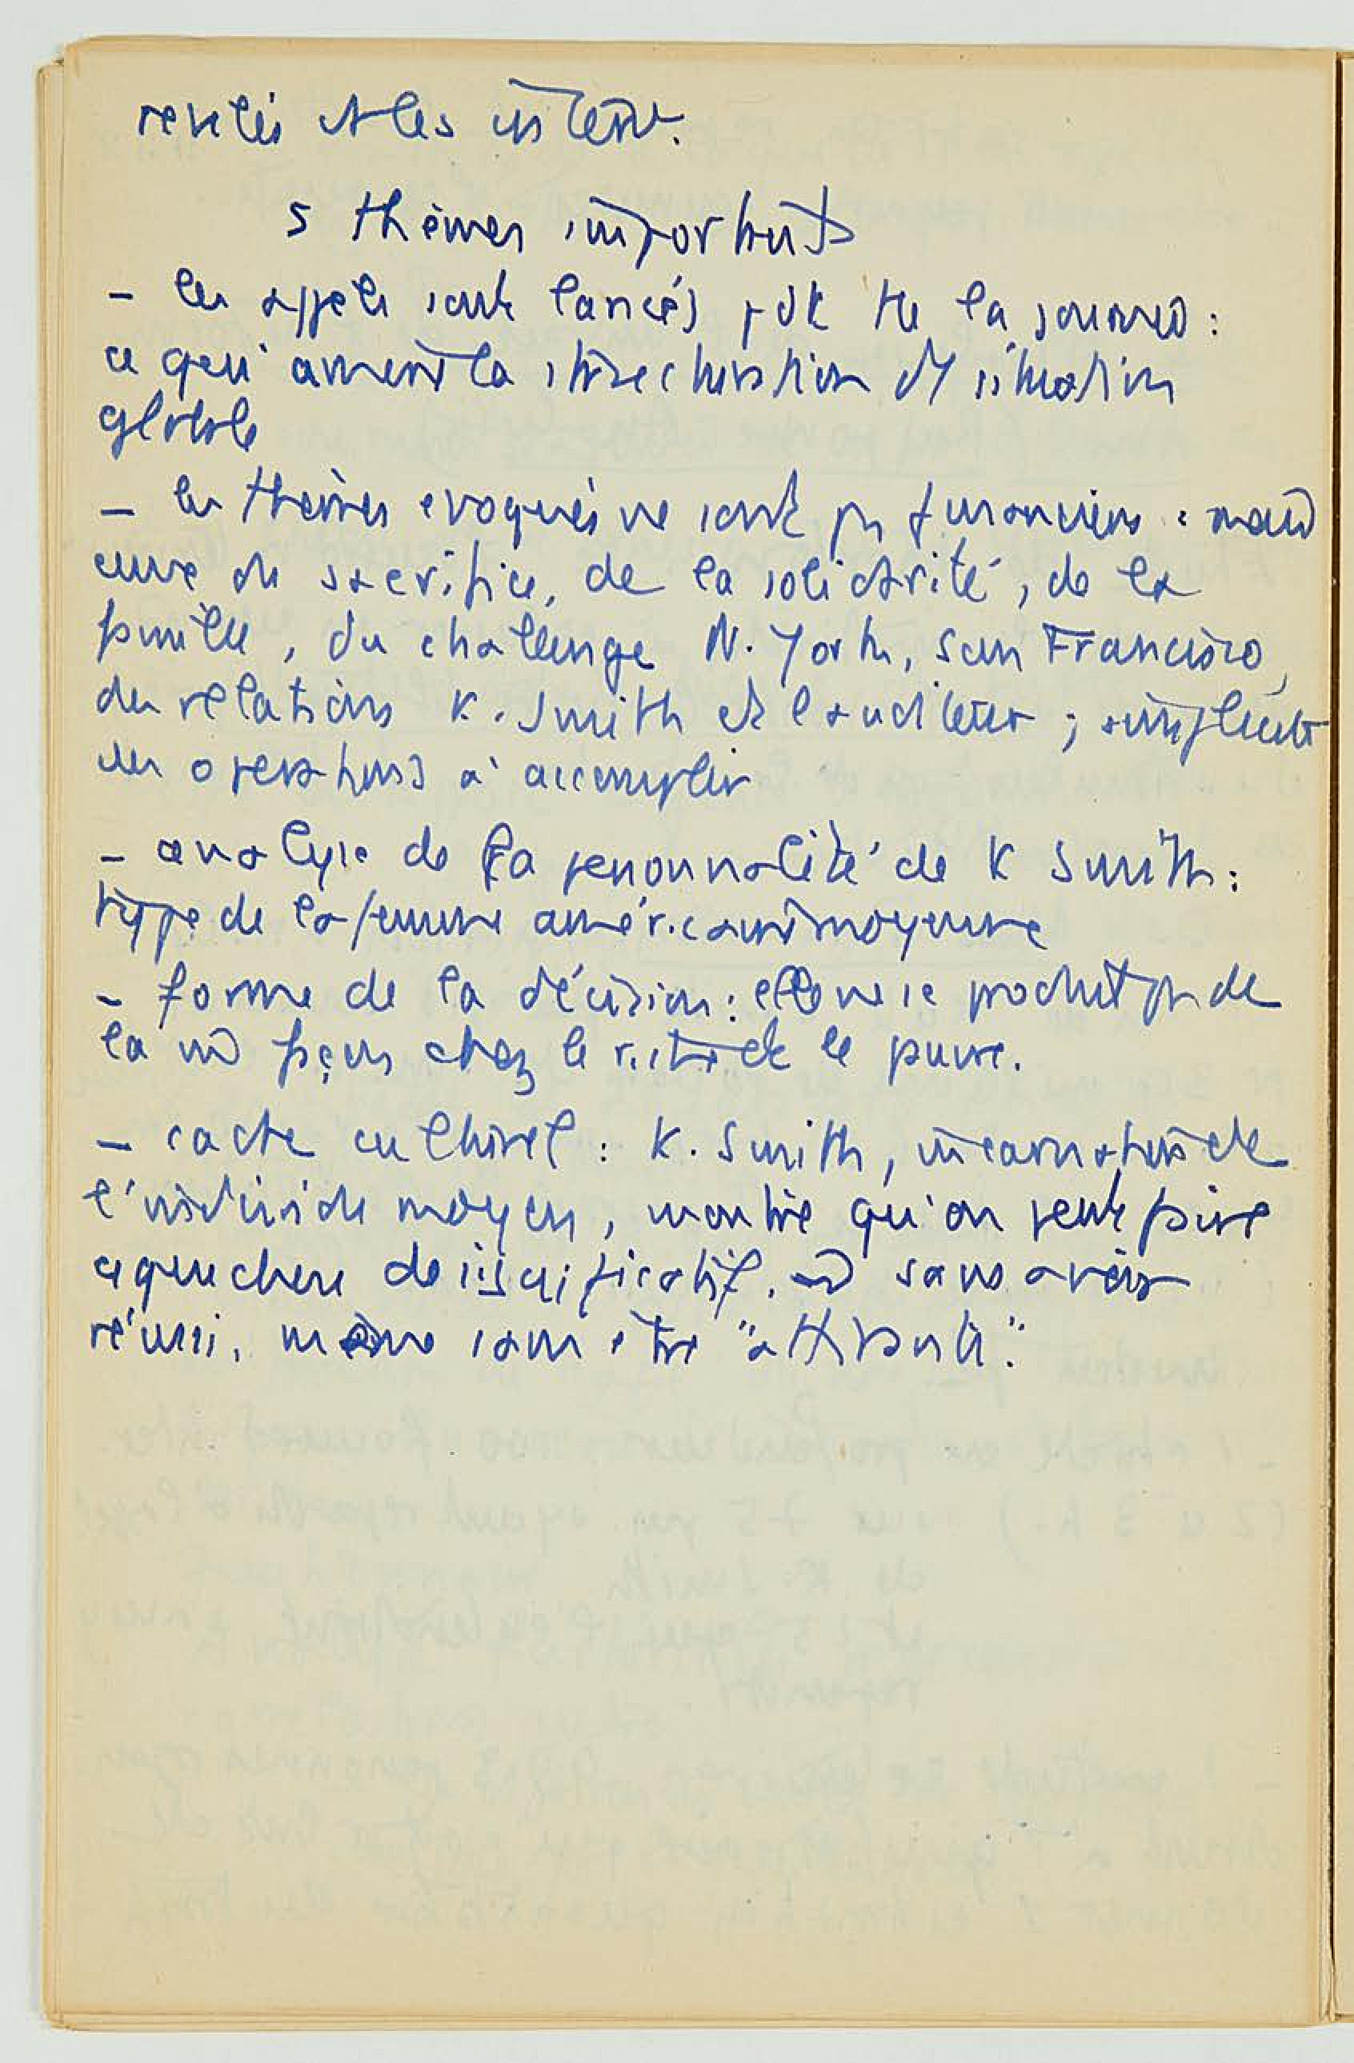 et les interv.
5 thèmes importants
- les appels sont lancés pdt tte la journée :
ce qui amène la structuration d'1 situation
globale
- les thèmes evoqués ne sont pas financiers : mais
ceux du sacrifice, de la solidarité, de la
famille, du challenge N. York, San Francisco,
des relations K. Smith et l'auditeur ; simplicité
des operations à accomplir
- analyse de la personnalité de K Smith :
type de la femme américaine moyenne
- forme de la décision : elle ne se produit pas de
la m façon chez le riche et le pauvre.
- cadre culturel : K. Smith, incarnation de
l'individu moyen, montre qu'on peut faire
qque chose de significatif, sans avoir
réussi, même sans être "attirante".